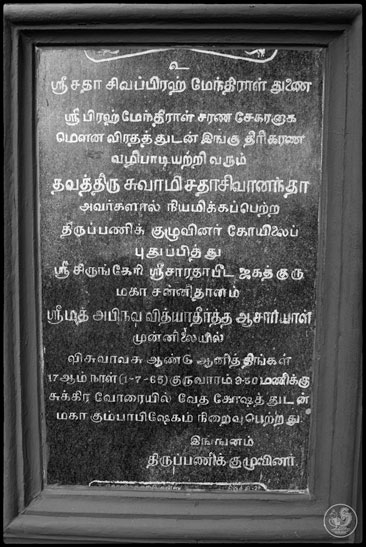 உ
ஸ்ரீ சதா சிவப்பிரஹ் மேந்திராள் துணை
ஸ்ரீ பிரஹ் மேந்திராள் சரண சேகரனாக
மௌன விரதத்துடன் இங்கு திரிகரண
வழிபாடியற்றி வரும்
தவத்திரு சுவாமி சதாசிவானந்தா
அவர்களால் நியமிக்கப்பெற்ற
திருப்பணிக் குழுவினர் கோயிலைப்
புதுப்பித்து
ஸ்ரீ சிருங்கேரி ஸ்ரீசாரதாபீட ஜகத்குரு
மகா சன்னிதானம்
ஸ்ரீமத் அபிநவ வித்யாதீர்த்த ஆசாரியாள்
முன்னிலையில்
விசுவாவசு ஆண்டு ஆனித்திங்கள்
17 ஆம் நாள் (1-7-65) குருவாரம் 9-50 மணிக்கு
சுக்கிர வோரையில் வேத கோஷத்துடன்
மகா கும்பாபிஷேகம் நிறைவுபெற்றது.
இங்ஙனம்
திருப்பணிக்குழுவினர்.